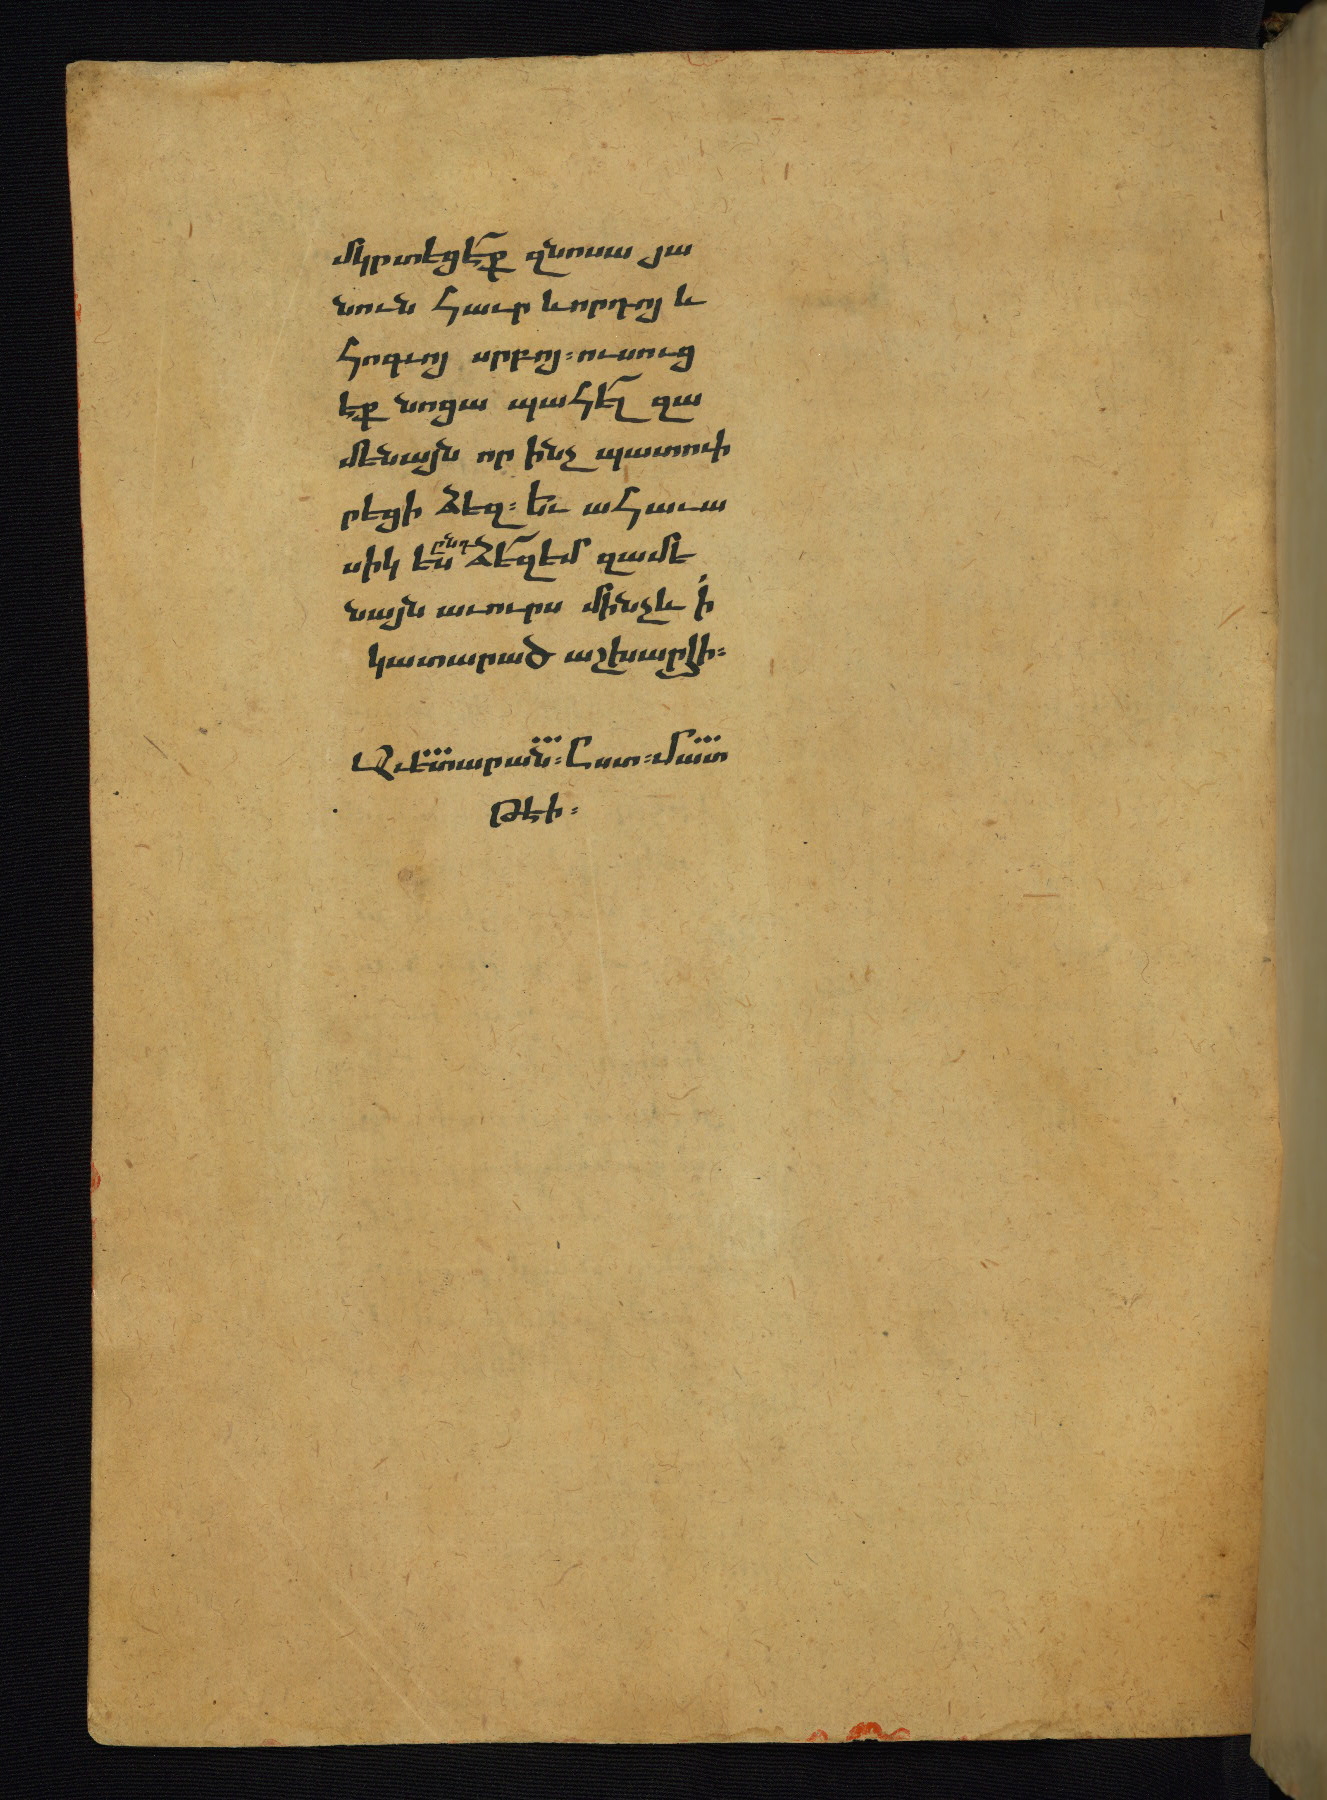 մկրտեցե՛ք զնոսա յա
նուն Հաւր և որդոյ և
Հոգւոյ սրբոյ։ ուսուց
էք նոցա պահե՛լ զա
մենայն որ ինչ պատուի
րեցի ձեզ։ Եւ ահաւա
սիկ ես ընդ ձե՛զ եմ զամե
նայն աւուրս մինչև ի՛
կատարած աշխարհի։
Աւետարան։ Ըստ։ մատ
թէի։